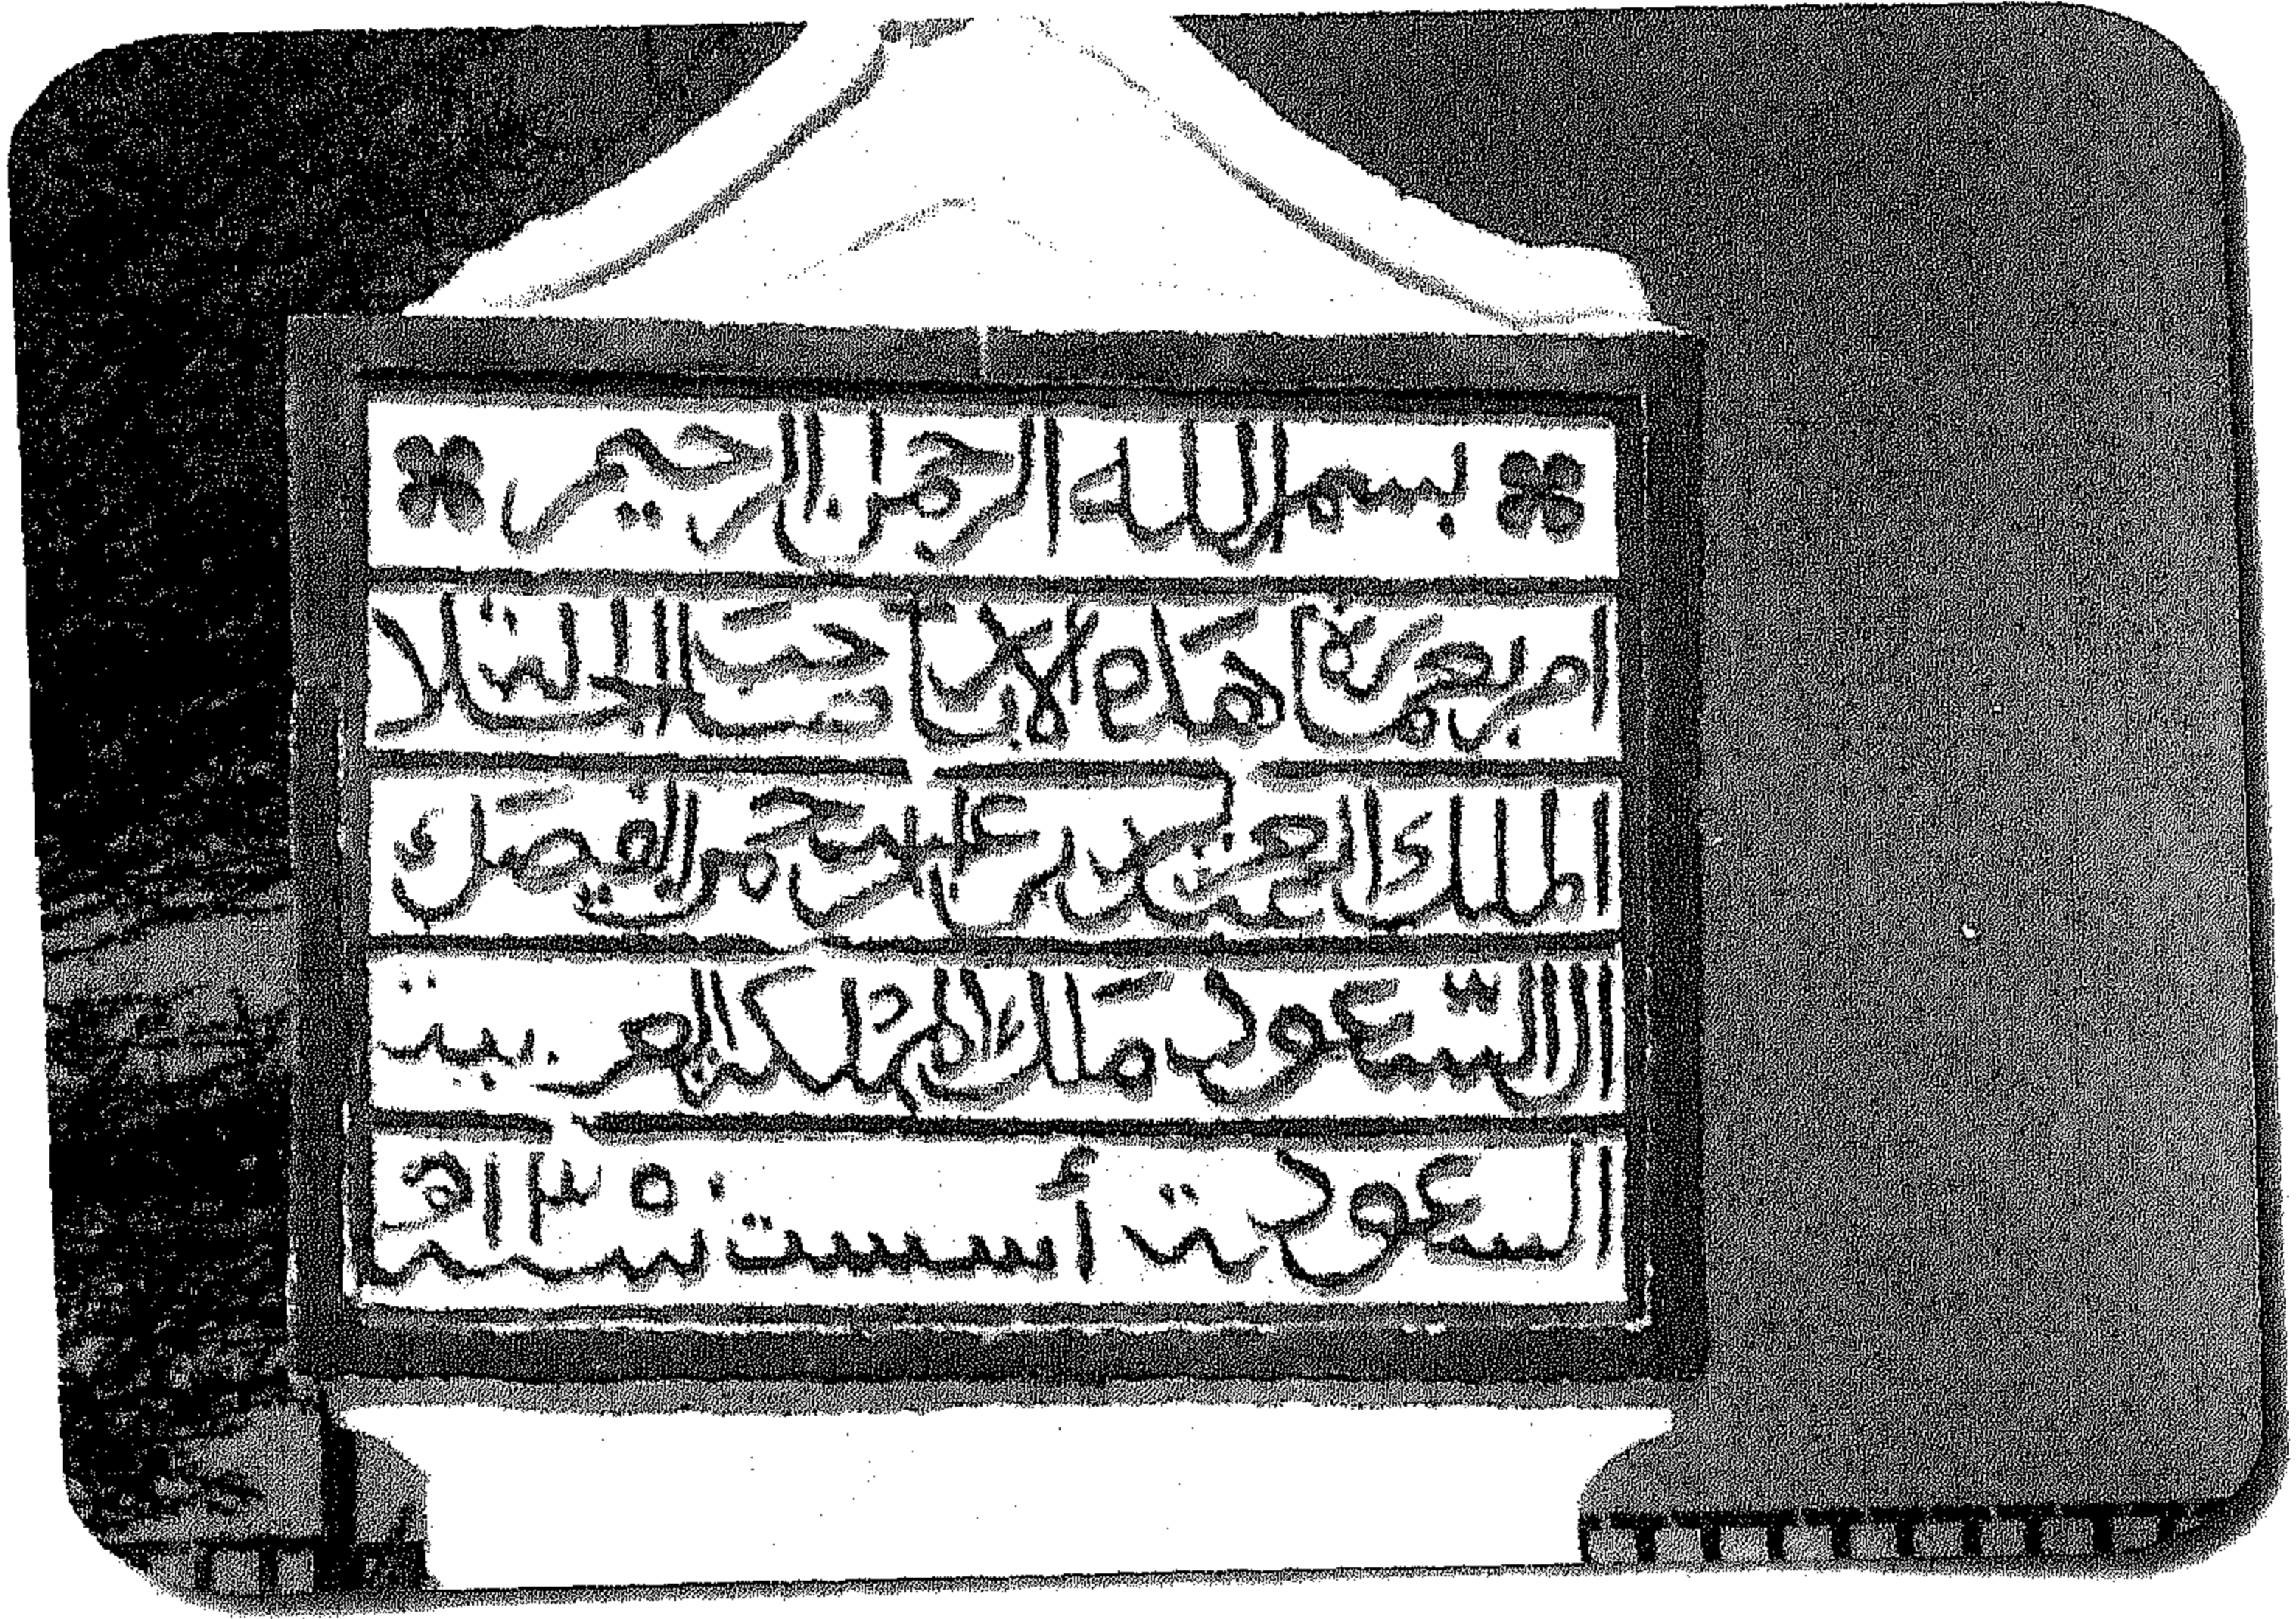 بسم الله الرحمن الرحيم
امر بعمارة هذه الابار صاحب الجلالة
الملك عبد العزيز بن عبد الرحمن الفيصل
ال السعود ملك المملكة العربية
السعودية أسست سنة ١٣٥ هـ